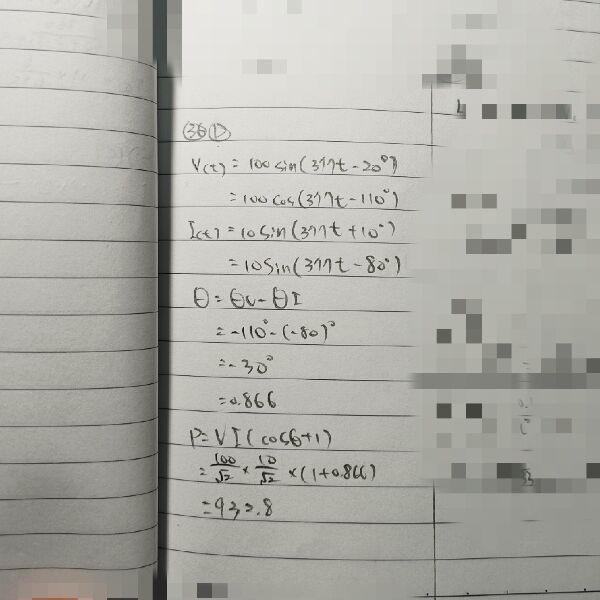 36 ①
V(t) = 100 sin(377t - 20°)
= 100 cos(377t - 110°)
I(t) = 10 sin(377t + 10°)
= 10 sin(377t - 80°)
θ = θv - θI
= -110° - (-80)°
= -30°
= 0.866
P = V I (cosθ + 1)
= 100/√2 × 10/√2 × (1 + 0.866)
= 932.8